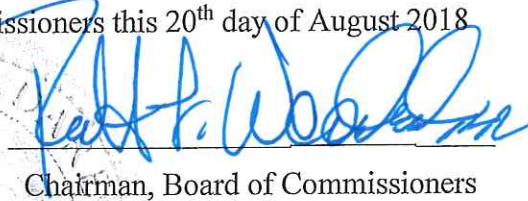 issioners this 20th day of August 2018
Chairman, Board of Commissioners